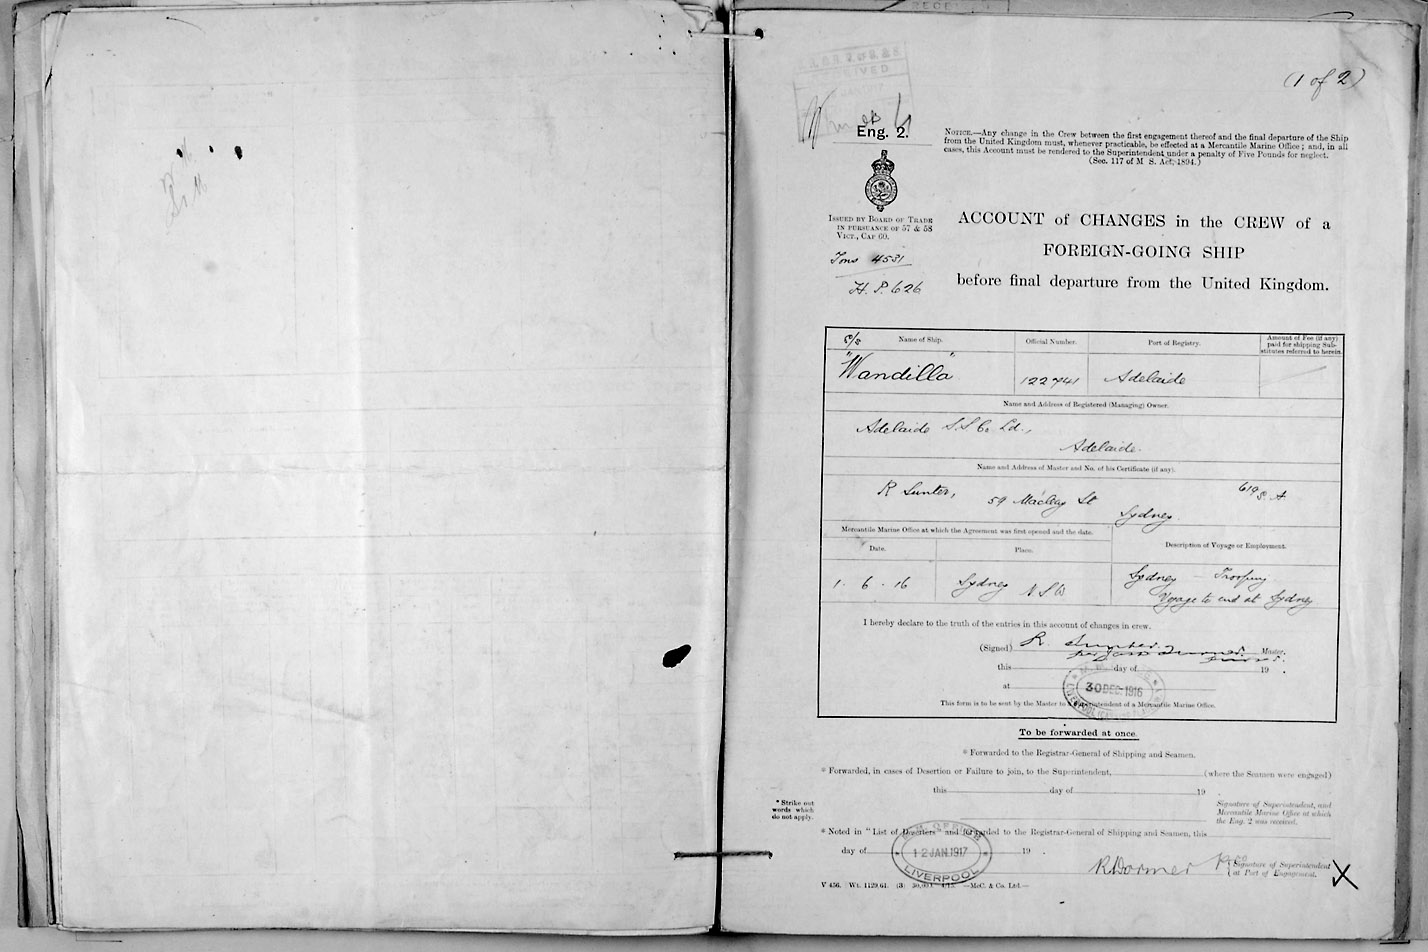 RECEIVED
(1 of 2)
Eng. 2.
NOTICE.—Any change in the Crew between the first engagement thereof and the final departure of the Ship
from the United Kingdom must, whenever practicable, be effected at a Mercantile Marine Office; and, in all
cases, this Account must be rendered to the Superintendent under a penalty of Five Pounds for neglect.
(Sec. 117 of M S. Act, 1894.)
ISSUED BY BOARD OF TRADE
IN PURSUANCE OF 57 & 58
VICT., CAP 60.
Tons 4531
H.P. 626
ACCOUNT of CHANGES in the CREW of a
FOREIGN-GOING SHIP
before final departure from the United Kingdom.
Name of Ship. Official Number. Port of Registry. Amount of Fee (if any)
paid for shipping Sub-
stitutes referred to herein.
"Wandilla" 122741 Adelaide
Name and Address of Registered (Managing) Owner.
Adelaide S.S. Co Ld.,
Adelaide.
Name and Address of Master and No. of his Certificate (if any).
R Sunter, 59 Macleay St Sydney. 619 S.A.
Mercantile Marine Office at which the Agreement was first opened and the date.
Description of Voyage or Employment.
Date. Place.
1. 6. 16 Sydney N S W Sydney — Trooping
Voyage to end at Sydney
I hereby declare to the truth of the entries in this account of changes in crew.
(Signed) R. Sunter. Master.
this day of 19 .
at
30 DEC. 1916
This form is to be sent by the Master to a Superintendent of a Mercantile Marine Office.
To be forwarded at once.
* Forwarded to the Registrar-General of Shipping and Seamen.
* Forwarded, in cases of Desertion or Failure to join, to the Superintendent, (where the Seamen were engaged)
this day of 19 .
* Strike out
words which
do not apply.
Signature of Superintendent, and
Mercantile Marine Office at which
the Eng. 2 was received.
* Noted in "List of Deserters" and forwarded to the Registrar-General of Shipping and Seamen, this
day of 19 .
12 JAN. 1917
LIVERPOOL
Signature of Superintendent
at Port of Engagement.
X
V 456. Wt. 1129,61. —McC. & Co. Ltd.—